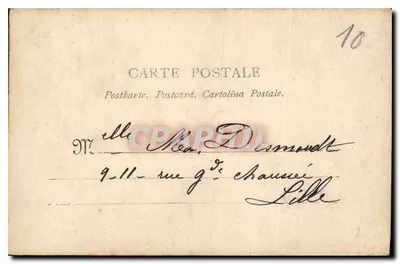 10
CARTE POSTALE
Postkarte. Postcard. Cartolina Postale.
Melle Mea. Desmondt
9-11 - rue gde chaussée
Lille